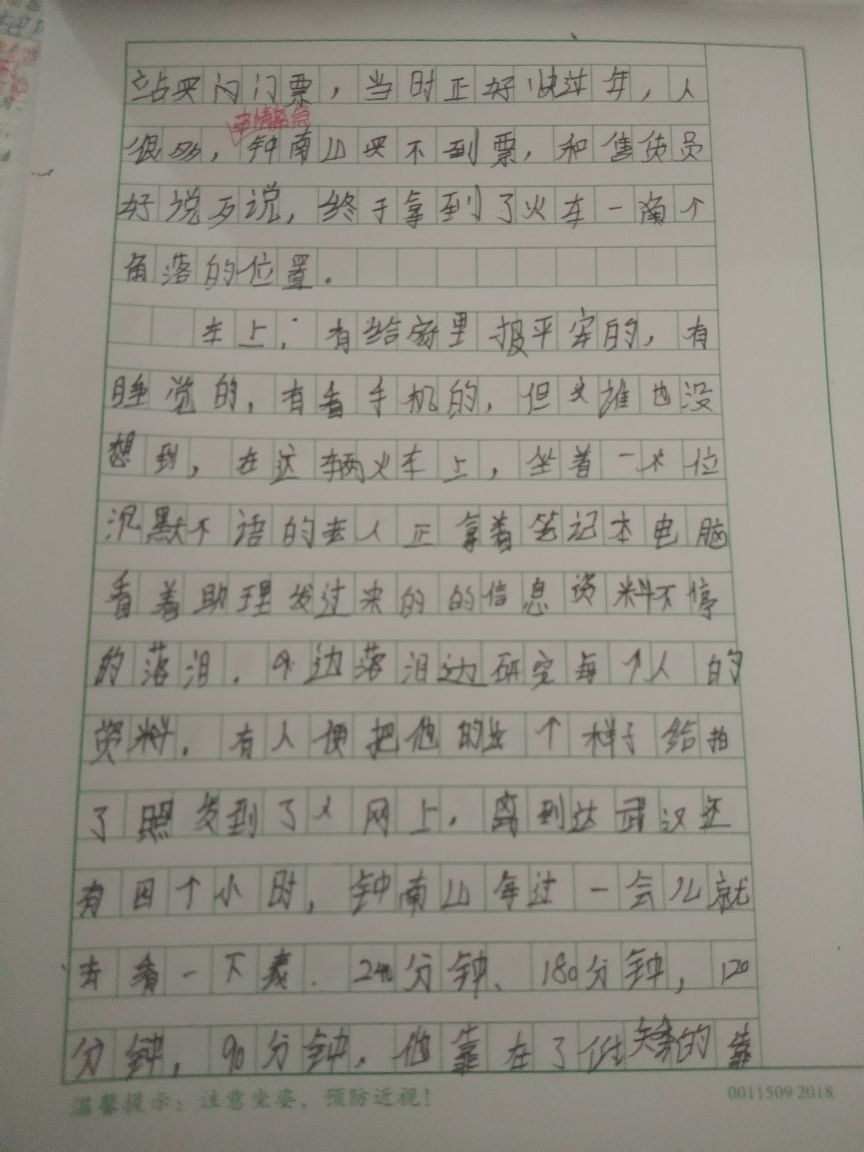 站买门票，当时正好快过年，人
事情紧急
很多，钟南山买不到票，和售货员
好说歹说，终于拿到了火车一个
角落的位置。
车上，有给家里报平安的，有
睡觉的，有看手机的，但谁也没
想到，在这辆火车上，坐着一位
沉默不语的老人正拿着笔记本电脑
看着助理发过来的的信息资料不停
的落泪。边落泪边研究每个人的
资料。有人便把他的这个样子给拍
了照发到了网上，离到达武汉还
有四个小时，钟南山每过一会儿就
去看一下表。240分钟、180分钟，120
分钟，90分钟，他靠在了低矮的靠
温馨提示：注意坐姿，预防近视！
0011509 2018